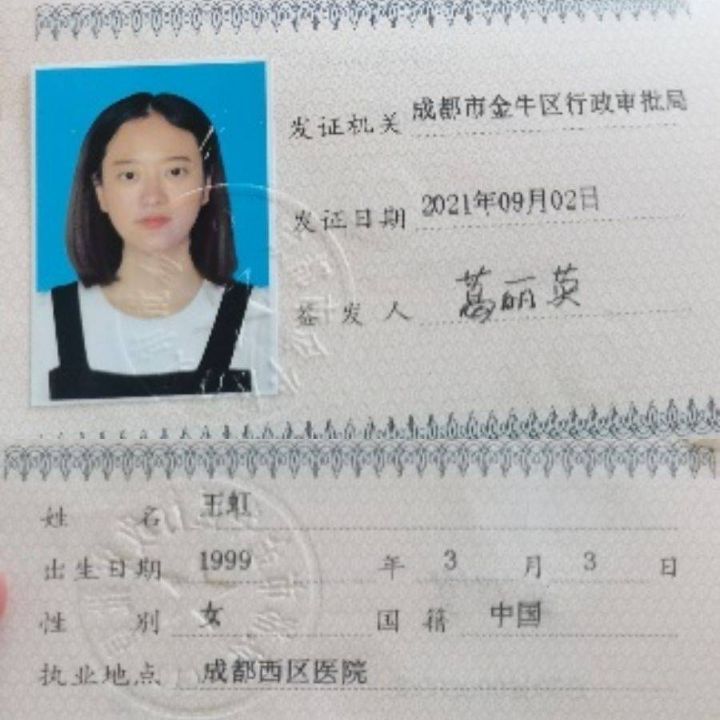 发证机关 成都市金牛区行政审批局
发证日期 2021年09月02日
签发人 葛丽英
姓名 王虹
出生日期 1999年3月3日
性别 女 国籍 中国
执业地点 成都西区医院